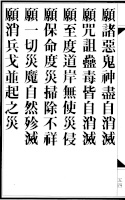 願諸惡鬼神盡自消滅
願咒詛蠱毒皆自消滅
願至度道岸無使災侵
願保命度災掃除不祥
願一切災魔自然殄滅
願消兵戈並起之災